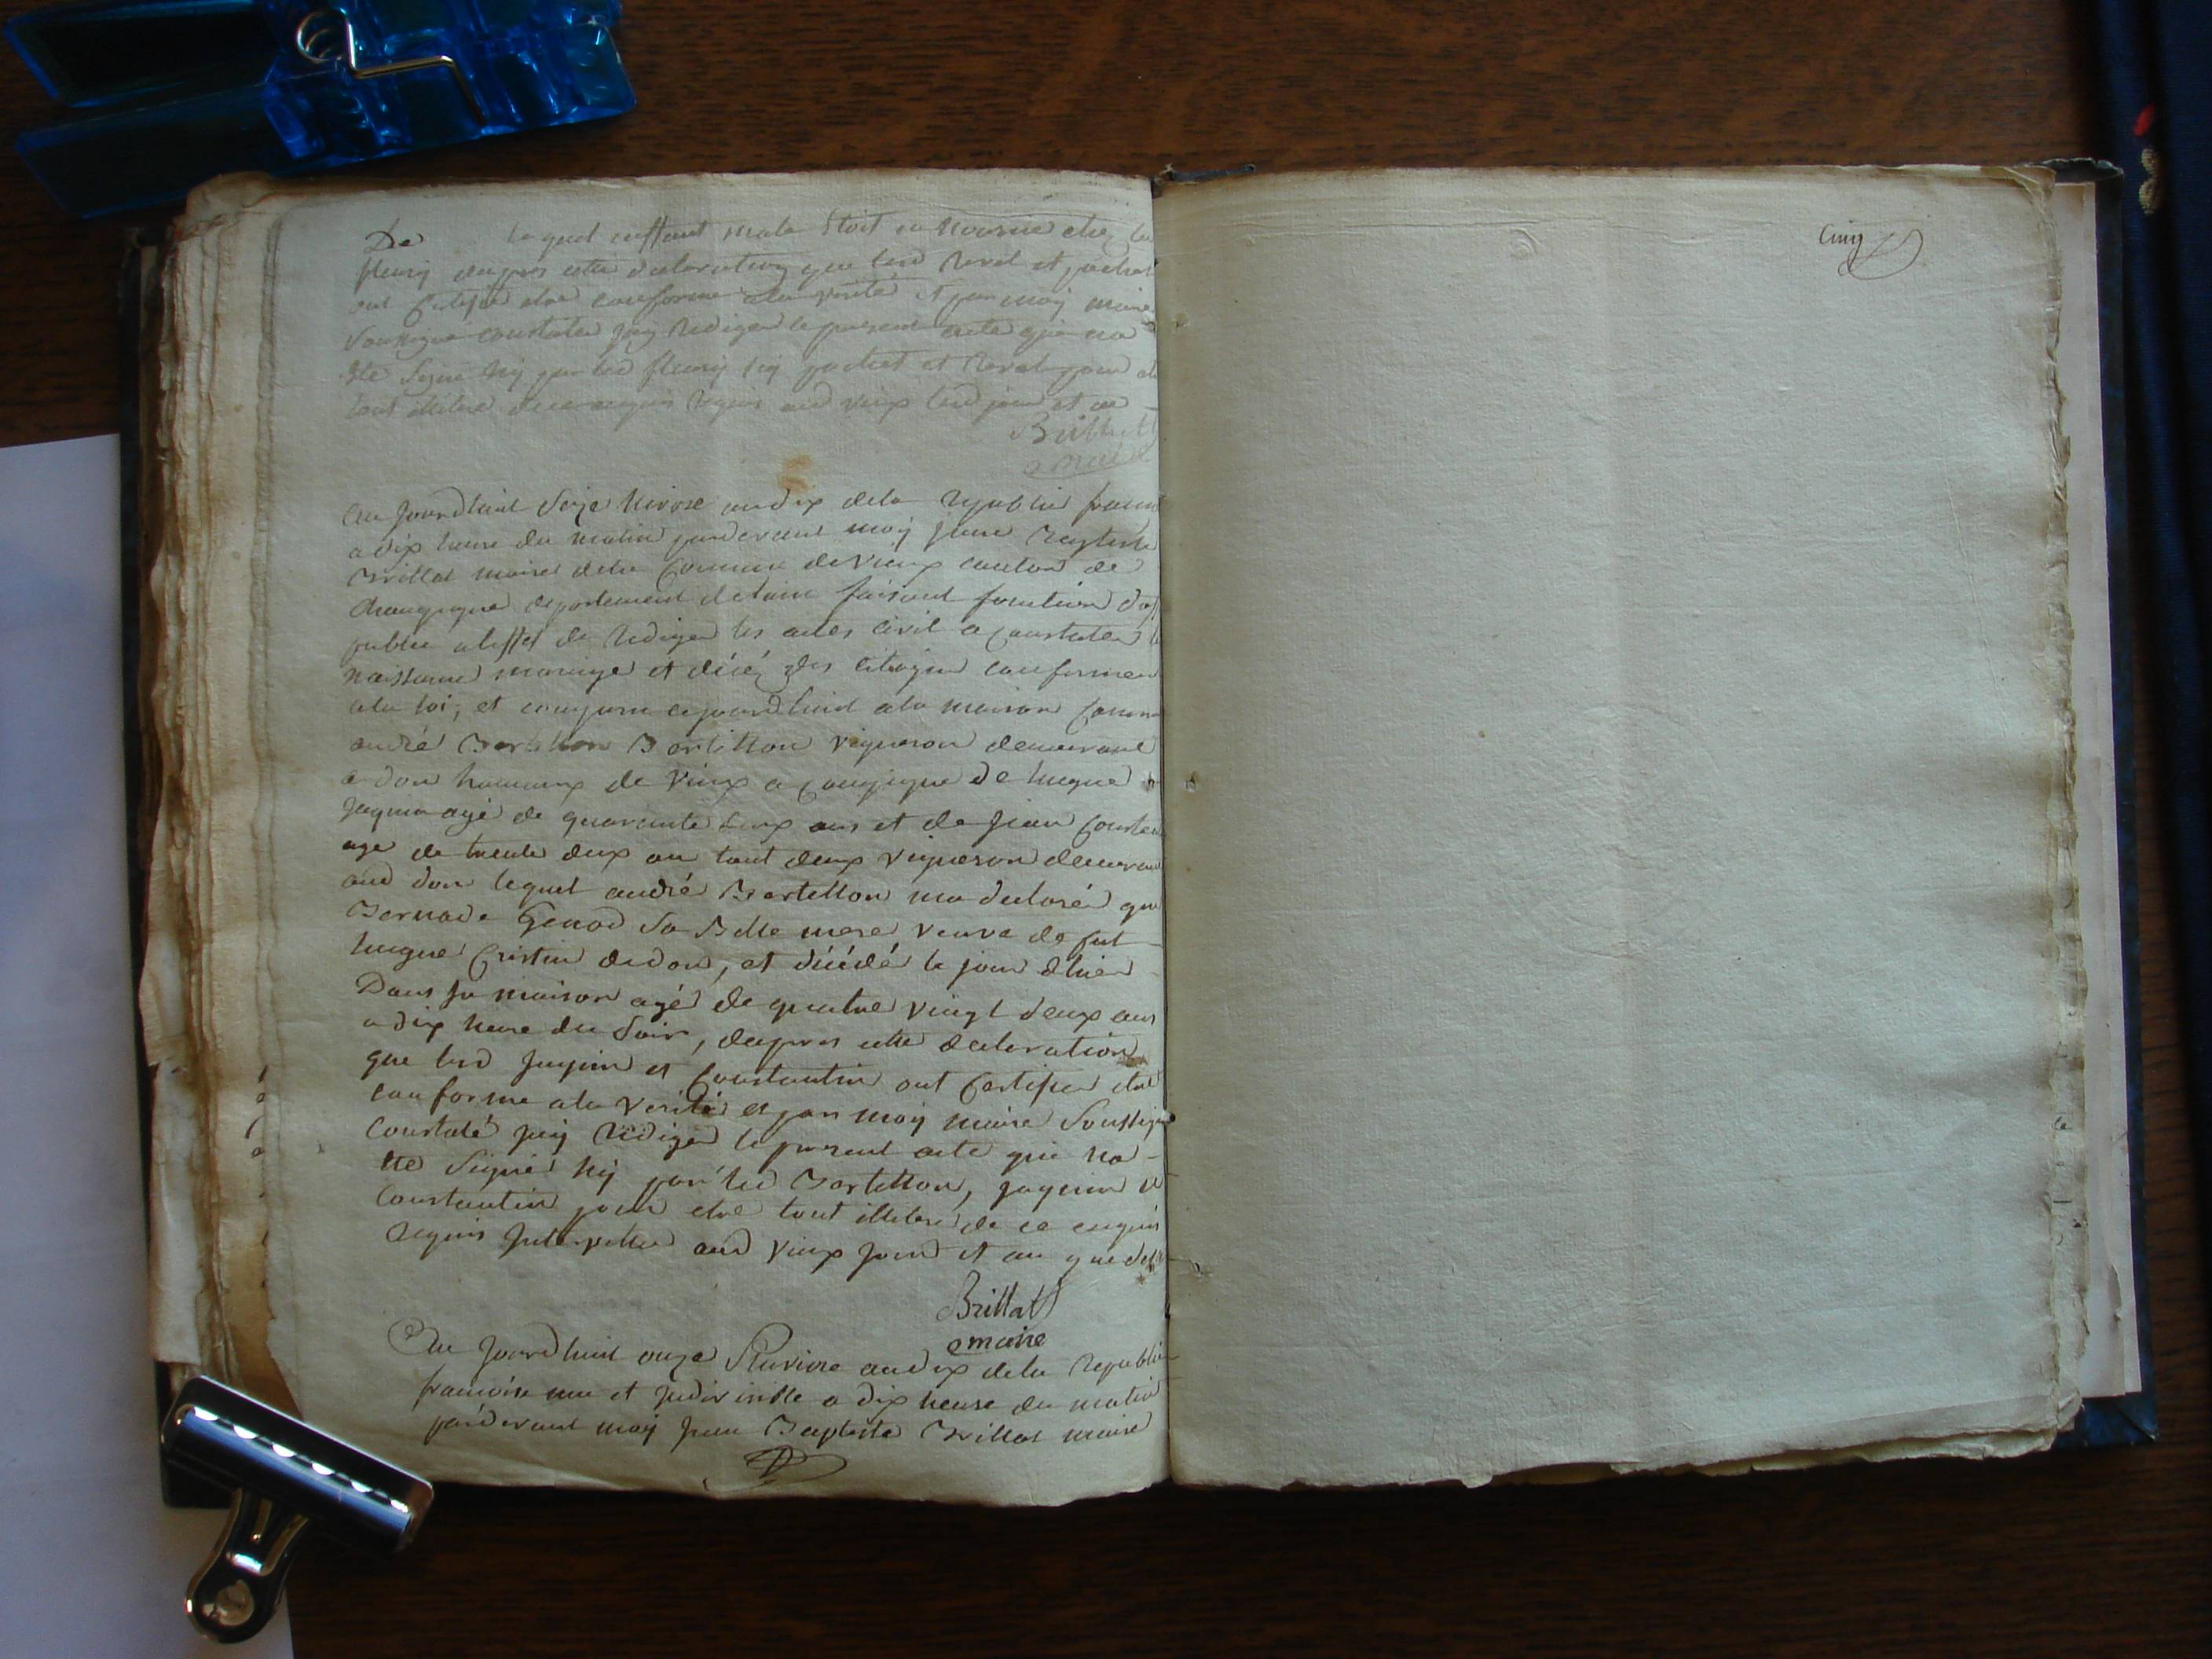 De lequel enffant male Etoit en nourrice chez
fleury dapres cette declaration que led Revel et pochet
ont certifié etre conforme ala verité et par moy maire
Soussigné constaté jay Redigé le present acte qui na
Ete Signé Ny par led fleury Ny pochet et Revel pour
tout illitere de ce enquis Requis aud vieux led jour et an
Brillat
maire
Au Jourdhuit Seize Nivose an dix dela Republi franc
a dix heure du matin pardevant moy Jean Baptiste
Brillat maire dela Commune de Vieux canton de
Champagne departement de lain faisant fonction dof
public a leffet de Rediger les actes civil a Constater l
Naissance mariage et décéz des citoyen conformem
ala loi, et comparu cejourdhuit ala maison Comm
andré Bertillon Bertillon vigneron demeurant
a don hameaux de Vieux a Compagne de hugue
Jaquin agé de quarante deux ans et de Jean Constan
age de trente deux an tout deux vigneron demeurant
aud don lequel andré Bertillon ma declaré que
Bernade Genod Sa Belle mere veuve de fut
hugue Cristin dedon, et décédé le jour dhier
Dans sa maison agé de quatre vingt deux ans
a dix heure du Soir, dapres cette declaration
que led Jaquin et Constantin ont Certifier etre
conforme ala verité et par moy maire Soussign
Constaté jay Rediger le present acte qui na
ete Signé Ny par led Bertillon, Jaquin et
Constantin pour etre tout illitere de ce enquis
Requis Interpeller aud Vieux Jour et an que dess
Brillat
maire
Au Jourdhuit onze Pluviose an dix dela Republi
francoise une et Indivisible a dix heure du matin
pardevant moy Jean Baptiste Brillat maire
Cinq